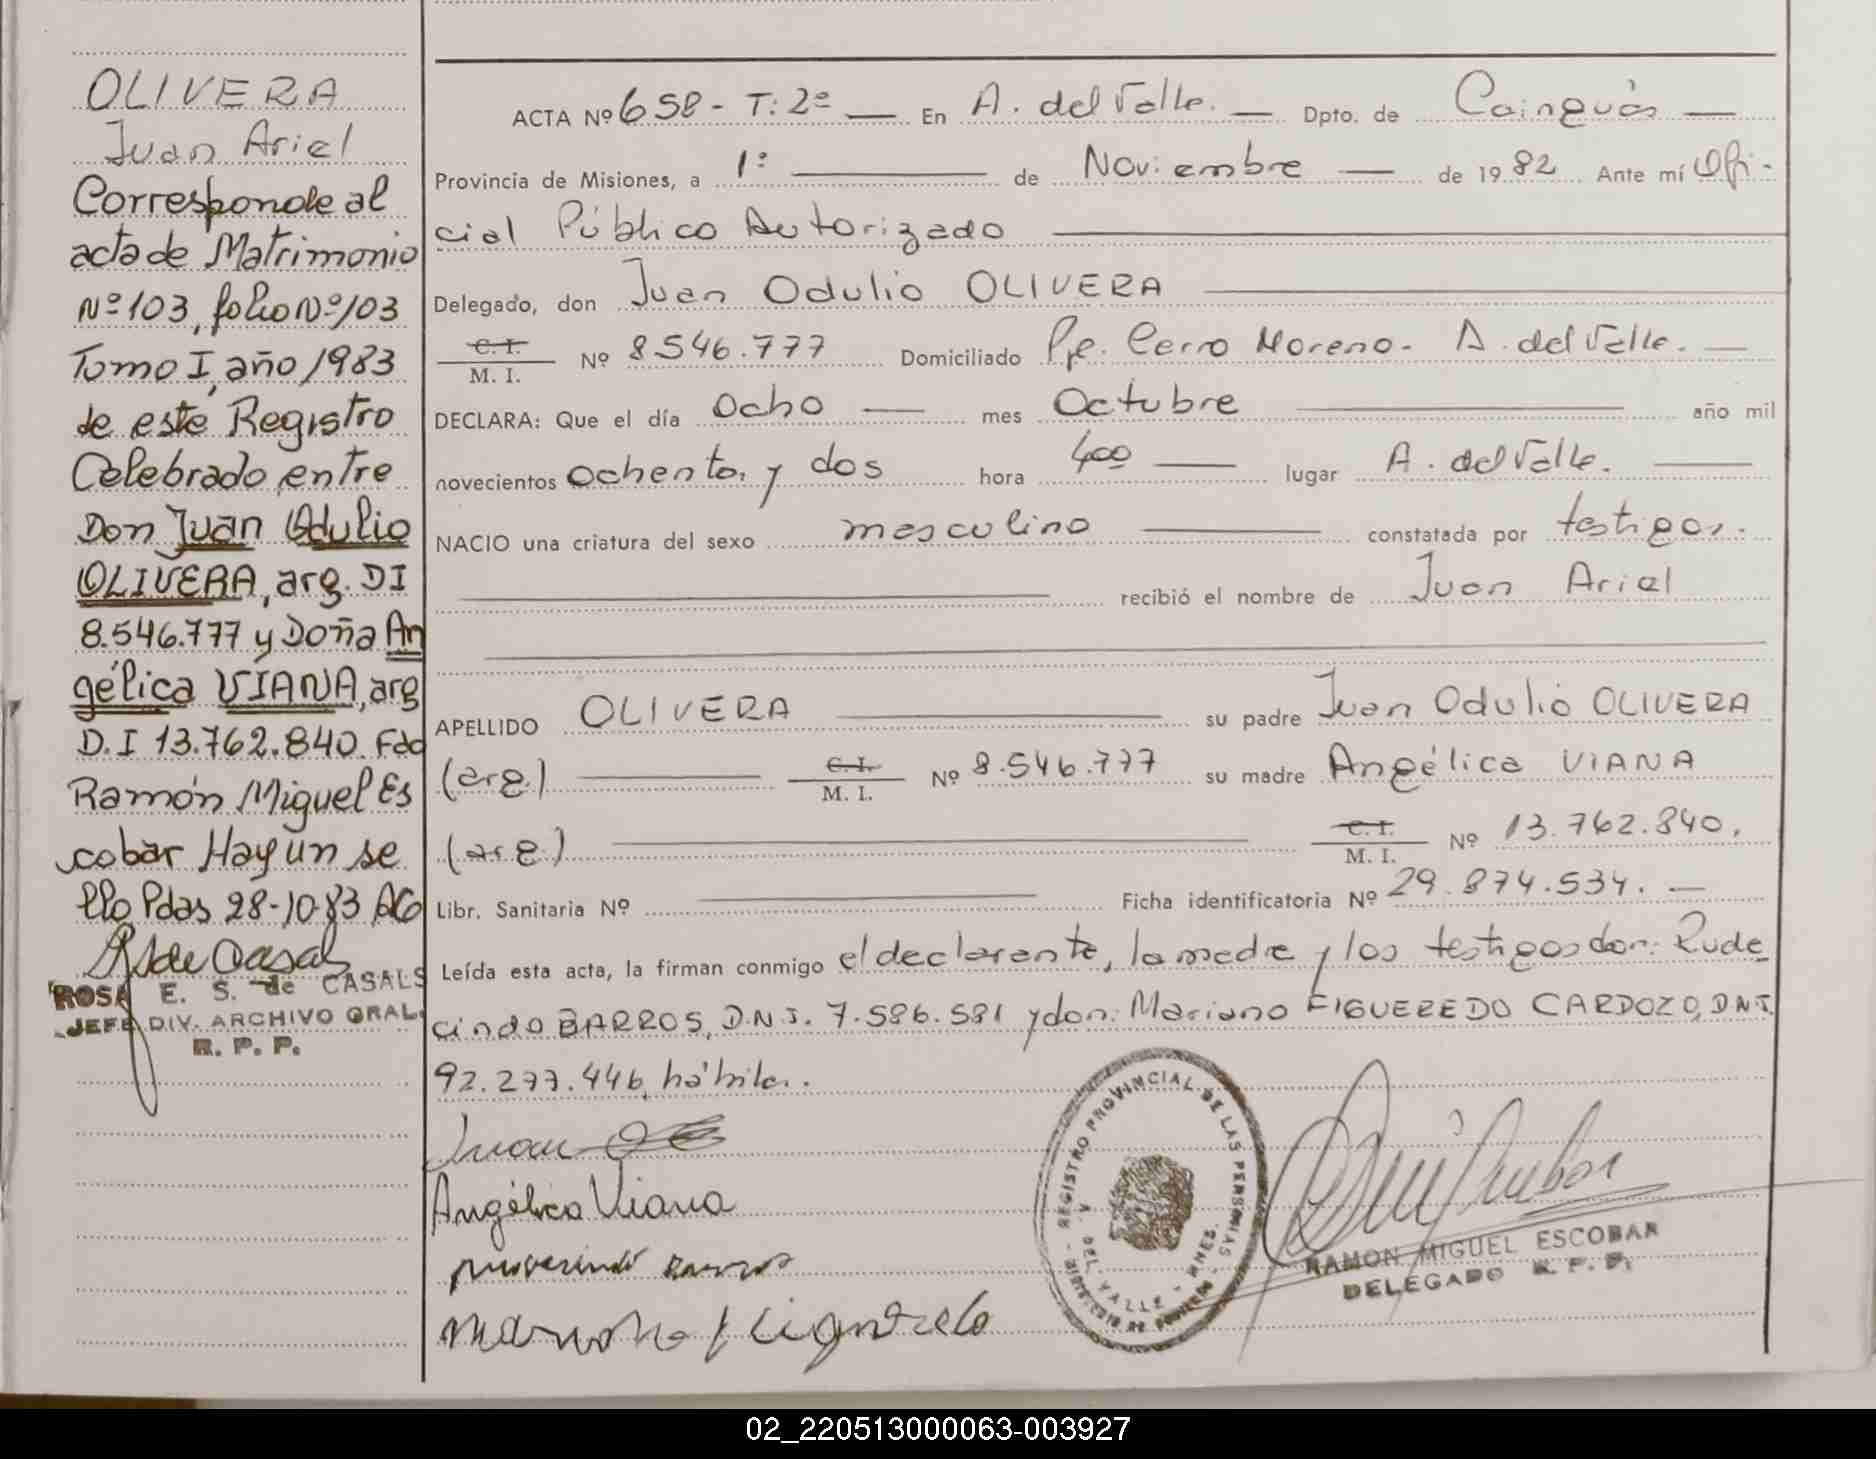 OLIVERA
Juan Ariel
Corresponde al
acta de Matrimonio
Nº 103, folio Nº 103
Tomo I, año 1983
de este Registro
Celebrado entre
Don Juan Odulio
OLIVERA, arg. DI
8.546.777 y Doña An
gélica VIANA, arg
D.I 13.762.840. Fdo
Ramón Miguel Es
cobar Hay un se
llo Pdas 28-10-83
ROSA E. S. de CASALS
JEFE DIV. ARCHIVO GRAL.
R. P. P.
ACTA Nº 658 - T: 2º En A. del Valle. Dpto. de Cainguás
Provincia de Misiones, a 1º de Noviembre de 1982 Ante mí Ofi-
cial Público Autorizado
Delegado, don Juan Odulio OLIVERA
C. I.
M. I. Nº 8.546.777 Domiciliado Pje. Cerro Moreno - A. del Valle.
DECLARA: Que el día Ocho mes Octubre año mil
novecientos ochenta y dos hora 400 lugar A. del Valle.
NACIO una criatura del sexo masculino constatada por testigos.
recibió el nombre de Juan Ariel
APELLIDO OLIVERA su padre Juan Odulio OLIVERA
(arg.) C. I. M. I. Nº 8.546.777 su madre Angélica VIANA
(arg) C. I. M. I. Nº 13.762.840,
Libr. Sanitaria Nº Ficha identificatoria Nº 29.874.534.
Leída esta acta, la firman conmigo el declarante, la madre y los testigos don: Rude
cindo BARROS, D.N.I. 7.586.581 y don: Mariano FIGUEREDO CARDOZO, D.N.I.
92.277.446, hábiles.
Juan
Angélica Viana
REGISTRO PROVINCIAL DE LAS PERSONAS
A. DEL VALLE - MNES.
RAMON MIGUEL ESCOBAR
DELEGADO R. P. P.
02_220513000063-003927